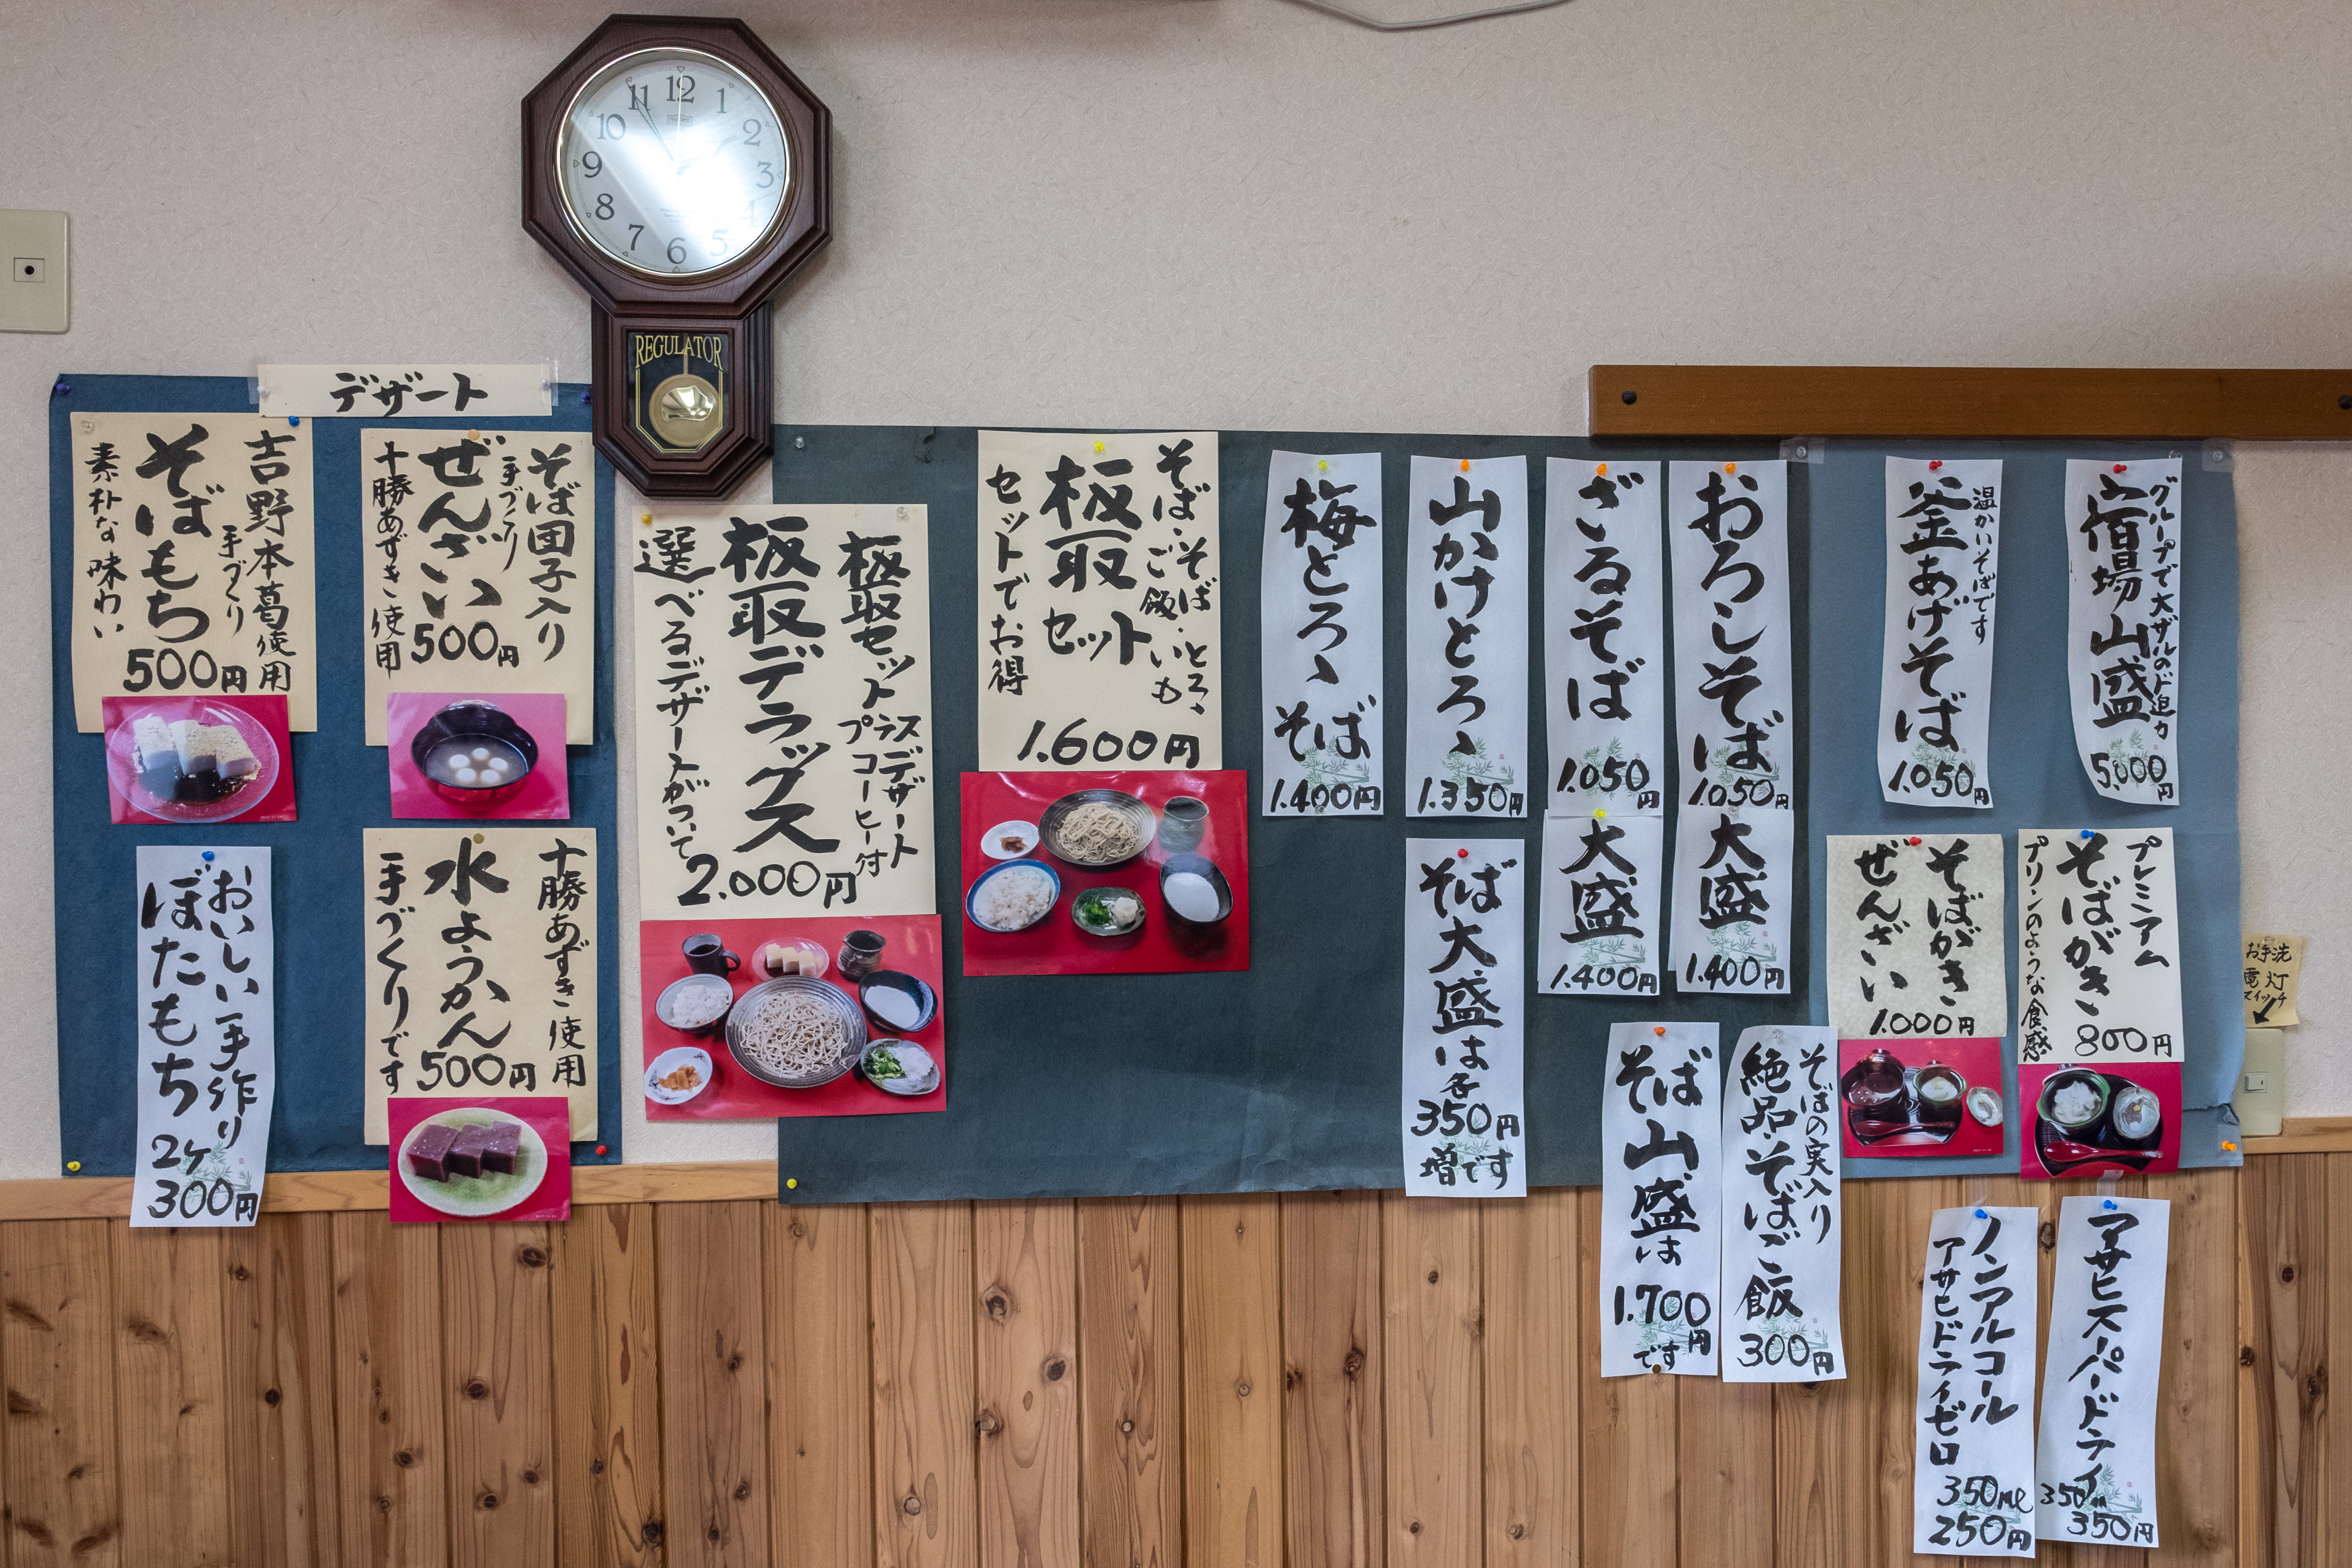 12
1
2
3
4
5
6
7
8
9
10
11
REGULATOR
デザート
吉野本葛使用
手づくり
そばもち
素朴な味わい
500円
そば団子入り
手づくり
ぜんざい
十勝あずき使用
500円
おいしい手作り
ぼたもち
2ケ
300円
十勝あずき使用
水ようかん
手づくりです
500円
板取セット
プラスデザート
コーヒー付
板取デラックス
選べるデザートがついて
2.000円
そば・そば
ご飯・とろゝ
いも、
板取
セット
セットでお得
1.600円
梅とろゝそば
1.400円
山かけとろゝ
1.350円
ざるそば
1.050円
おろしそば
1.050円
大盛
1.400円
大盛
1.400円
そば大盛は各
350円
増です
温かいそばです
釜あげそば
1.050円
グループで大ザルのド迫力
宿場山盛
5.000円
そばがき
ぜんざい
1.000円
プレミアム
そばがき
プリンのような食感
800円
そば山盛は
1.700円
です
そばの実入り
絶品そばご飯
300円
ノンアルコール
アサヒドライゼロ
350ml
250円
アサヒスーパードライ
350ml
350円
お手洗
電灯
スイッチ